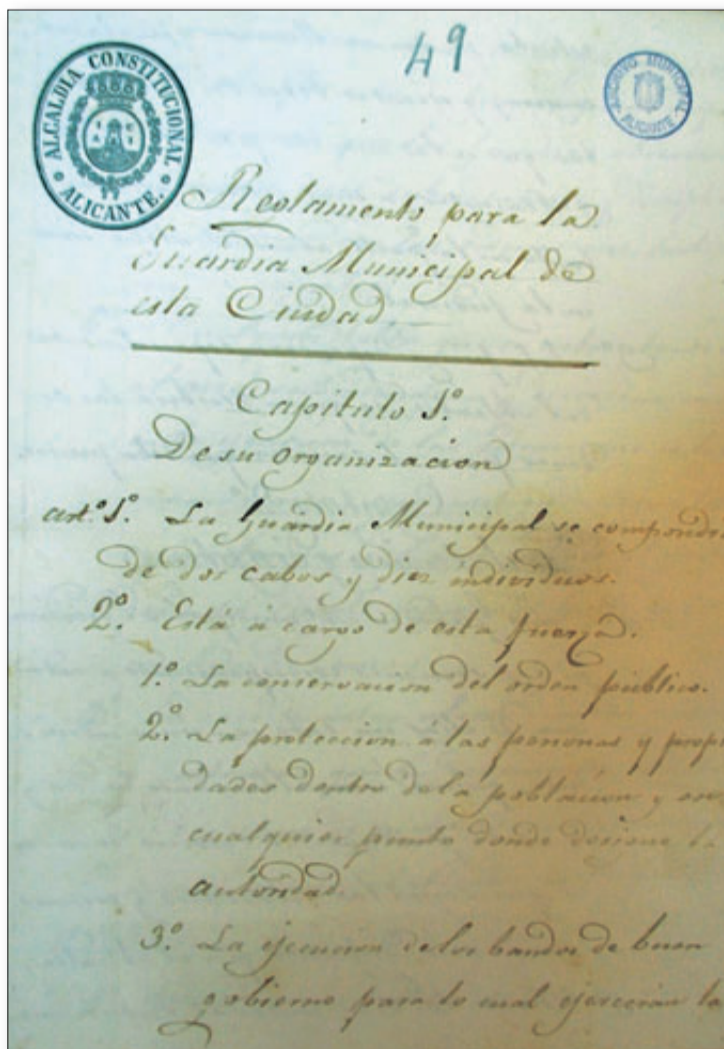 ALCALDIA CONSTITUCIONAL
ALICANTE.
49
ARCHIVO MUNICIPAL
ALICANTE
Reglamento para la
Guardia Municipal de
esta Ciudad
Capitulo 1º.
De su organizacion
art.º 1º. La Guardia Municipal se compondrá
de dos cabos y diez individuos.
2º. Está á cargo de esta fuerza.
1º. La conservacion del orden público.
2º. La proteccion a las personas y propi
dades dentro de la poblacion y en
cualquier punto donde designe l
autoridad
3º. La ejecucion de los bandos de buen
gobierno para lo cual ejercerán la